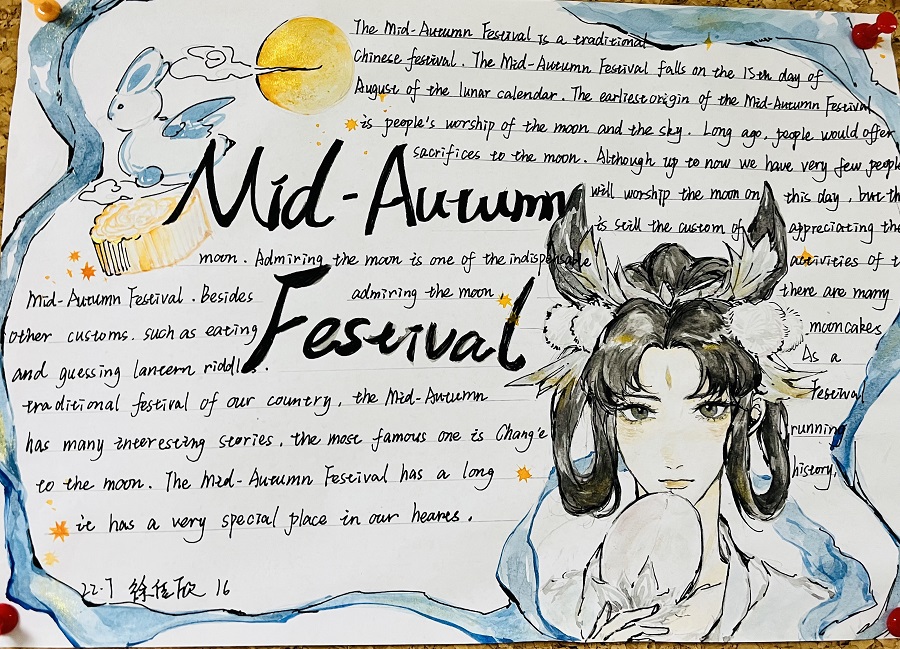 The Mid-Autumn Festival is a traditional
Chinese festival. The Mid-Autumn Festival falls on the 15th day of
August of the lunar calendar. The earliest origin of the Mid-Autumn Festival
is people's worship of the moon and the sky. Long ago, people would offer
sacrifices to the moon. Although up to now we have very few people
Mid-Autumn
will worship the moon on this day, but th
is still the custom of appreciating the
moon. Admiring the moon is one of the indispensable activities of t
Festival
Mid-Autumn Festival. Besides admiring the moon, there are many
other customs. such as eating mooncakes
and guessing lantern riddl. As a
traditional festival of our country, the Mid-Autumn Festival
has many interesting stories, the most famous one is Chang'e running
to the moon. The Mid-Autumn Festival has a long history,
it has a very special place in our hearts.
22.7 徐佳欣 16